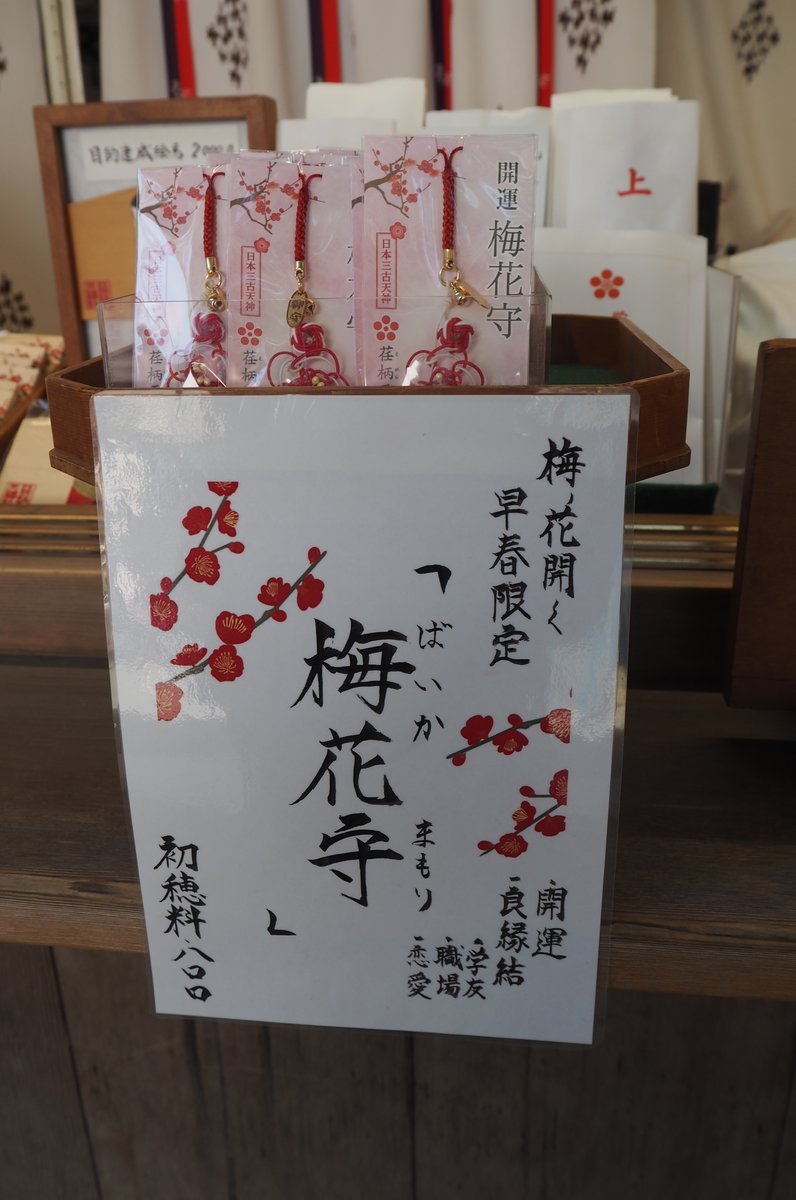 目的達成絵馬 2000円
開運 梅花守
日本三古天神
荏柄
日本三古天神
荏柄
上
梅ノ花開く
早春限定
「ばいか まもり
梅花守」
・開運
・良縁結
・学友
・職場
・恋愛
初穂料 八〇〇